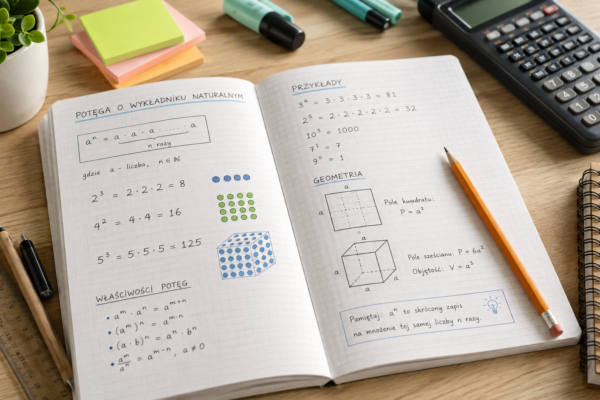 POTĘGA O WYKŁADNIKU NATURALNYM
aⁿ = a · a · a · ..... · a
n razy
gdzie a - liczba, n ∈ ℕ
2³ = 2 · 2 · 2 = 8
4² = 4 · 4 = 16
5³ = 5 · 5 · 5 = 125
WŁAŚCIWOŚCI POTĘG
• aᵐ · aⁿ = aᵐ⁺ⁿ
• (aᵐ)ⁿ = aᵐ·ⁿ
• (a · b)ⁿ = aⁿ · bⁿ
• aᵐ/aⁿ = aᵐ⁻ⁿ, a ≠ 0
PRZYKŁADY
3⁴ = 3 · 3 · 3 · 3 = 81
2⁵ = 2 · 2 · 2 · 2 · 2 = 32
10³ = 1000
7¹ = 7
9⁰ = 1
GEOMETRIA
a
a
Pole kwadratu:
P = a²
a
a
a
a
Pole sześcianu: P = 6a²
Objętość: V = a³
Pamiętaj: aⁿ to skrócony zapis
na mnożenie tej samej liczby n razy.